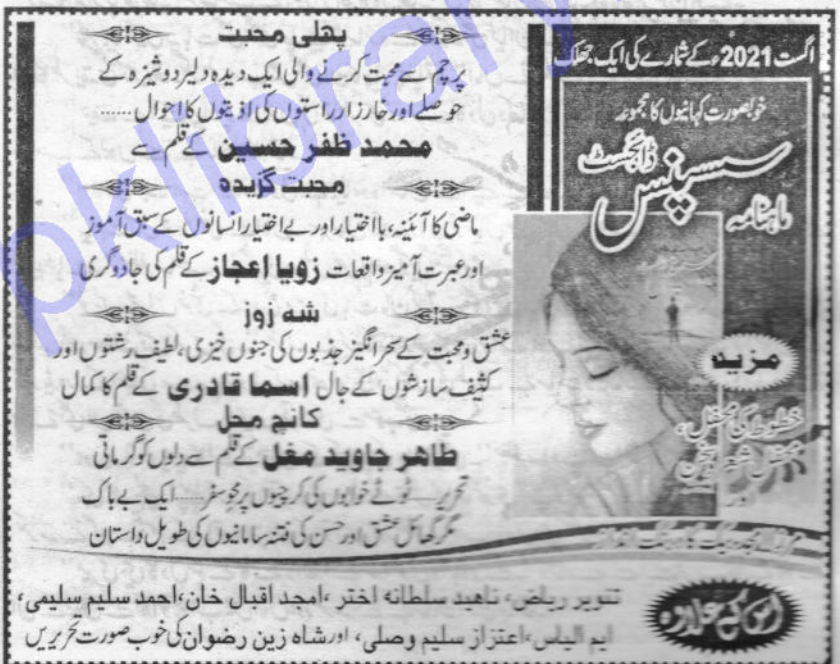 اگست 2021ء کے شمارے کی ایک جھلک
خوبصورت کہانیوں کا مجموعہ
سسپنس ڈائجسٹ
ماہنامہ
مزید
خطوط کی محفل،
محفل شعر و سخن
اور
پہلی محبت
پرچم سے محبت کرنے والی ایک دیدہ دلیر دوشیزہ کے
حوصلے اور خارزار راستوں کی اذیتوں کا احوال ......
محمد ظفر حسین کے قلم سے
محبت گزیدہ
ماضی کا آئینہ، بااختیار اور بے اختیار انسانوں کے سبق آموز
اور عبرت آمیز واقعات زویا اعجاز کے قلم کی جادوگری
شہ زوز
عشق و محبت کے سحر انگیز جذبوں کی جنوں خیزی، لطیف رشتوں اور
کثیف سازشوں کے جال اسما قادری کے قلم کا کمال
کانچ محل
طاہر جاوید مغل کے قلم سے دلوں کو گرماتی
تحریر .... ٹوٹے خوابوں کی کرچیوں پر محو سفر ..... ایک بے باک
مگر گھائل عشق اور حسن کی فتنہ سامانیوں کی طویل داستان
مرزا امجد بیگ کا دبنگ انداز
اس کے علاوہ
تنویر ریاض، ناہید سلطانہ اختر، امجد اقبال خان، احمد سلیم سلیمی،
ایم الیاس، اعتزاز سلیم وصلی، اور شاہ زین رضوان کی خوب صورت تحریریں
pklibrary